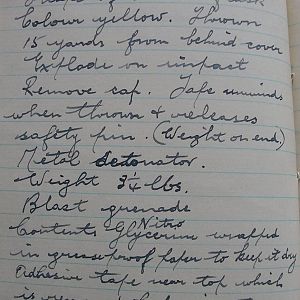 Colour yellow. Thrown
15 yards from behind cover
Explode on impact
Remove cap. Tape unwinds
when thrown & releases
safety pin. (Weight on end.)
Metal detonator.
Weight 3¼ lbs.
Blast grenade
Contents Nitro Glycerine wrapped
in greaseproof paper to keep it dry
Adhesive tape near top which
is